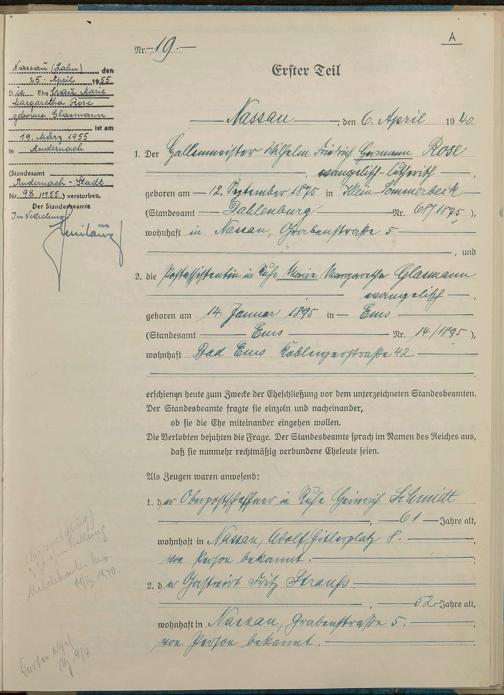 A
Nr. 19.
Erster Teil
Nassau (Lahn) den
25. April 1955
D ie Ehefrau Marie
Margaretha Rose
geborene Glasmann
ist am
19. März 1955
in Andernach
(Standesamt
Andernach-Stadt
Nr. 98/1955) verstorben.
Der Standesbeamte
In Vertretung
Nassau, den 6. April 1940
1. Der Hallenmeister Wilhelm Friedrich Hermann Rose
evangelisch-lutherisch
geboren am 12. September 1875 in Klein Sommerbeck
(Standesamt Dahlenburg Nr. 68/1875),
wohnhaft in Nassau, Grabenstraße 5
, und
2. die Postassistentin in Ruhe Marie Margaretha Glasmann
evangelisch,
geboren am 14. Januar 1895 in Ems
(Standesamt Ems Nr. 14/1895),
wohnhaft Bad Ems Koblenzerstraße 42
erschienen heute zum Zwecke der Eheschließung vor dem unterzeichneten Standesbeamten.
Der Standesbeamte fragte sie einzeln und nacheinander,
ob sie die Ehe miteinander eingehen wollen.
Die Verlobten bejahten die Frage. Der Standesbeamte sprach im Namen des Reiches aus,
daß sie nunmehr rechtmäßig verbundene Eheleute seien.
Als Zeugen waren anwesend:
1. der Oberpostschaffner in Ruhe Heinrich Schmidt
, 61 Jahre alt,
wohnhaft in Nassau, Adolf Hitlerplatz 8.
von Person bekannt.
2. der Gastwirt Fritz Strauß
52 Jahre alt,
wohnhaft in Nassau, Grabenstraße 5.
von Person bekannt.